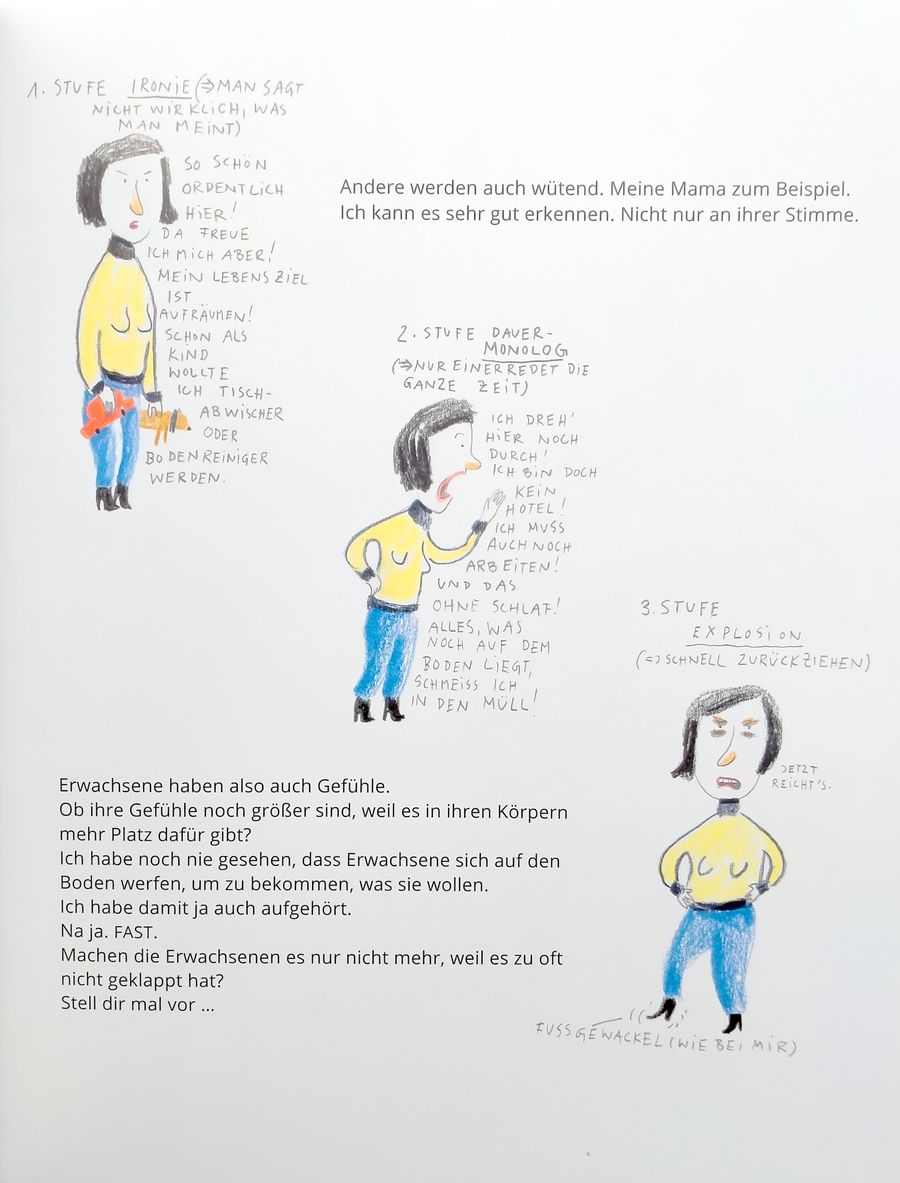 1. STUFE IRONIE (⇒ MAN SAGT
NICHT WIRKLICH, WAS
MAN MEINT)
SO SCHÖN
ORDENTLICH
HIER!
DA FREUE
ICH MICH ABER!
MEIN LEBENSZIEL
IST
AUFRÄUMEN!
SCHON ALS
KIND
WOLLTE
ICH TISCH-
ABWISCHER
ODER
BODENREINIGER
WERDEN.
Andere werden auch wütend. Meine Mama zum Beispiel.
Ich kann es sehr gut erkennen. Nicht nur an ihrer Stimme.
2. STUFE DAUER-
MONOLOG
(⇒ NUR EINER REDET DIE
GANZE ZEIT)
ICH DREH'
HIER NOCH
DURCH!
ICH BIN DOCH
KEIN
HOTEL!
ICH MUSS
AUCH NOCH
ARBEITEN!
UND DAS
OHNE SCHLAF!
ALLES, WAS
NOCH AUF DEM
BODEN LIEGT,
SCHMEISS ICH
IN DEN MÜLL!
3. STUFE
EXPLOSION
(⇒ SCHNELL ZURÜCKZIEHEN)
JETZT
REICHT'S.
FUSSGEWACKEL (WIE BEI MIR)
Erwachsene haben also auch Gefühle.
Ob ihre Gefühle noch größer sind, weil es in ihren Körpern
mehr Platz dafür gibt?
Ich habe noch nie gesehen, dass Erwachsene sich auf den
Boden werfen, um zu bekommen, was sie wollen.
Ich habe damit ja auch aufgehört.
Na ja. FAST.
Machen die Erwachsenen es nur nicht mehr, weil es zu oft
nicht geklappt hat?
Stell dir mal vor ...